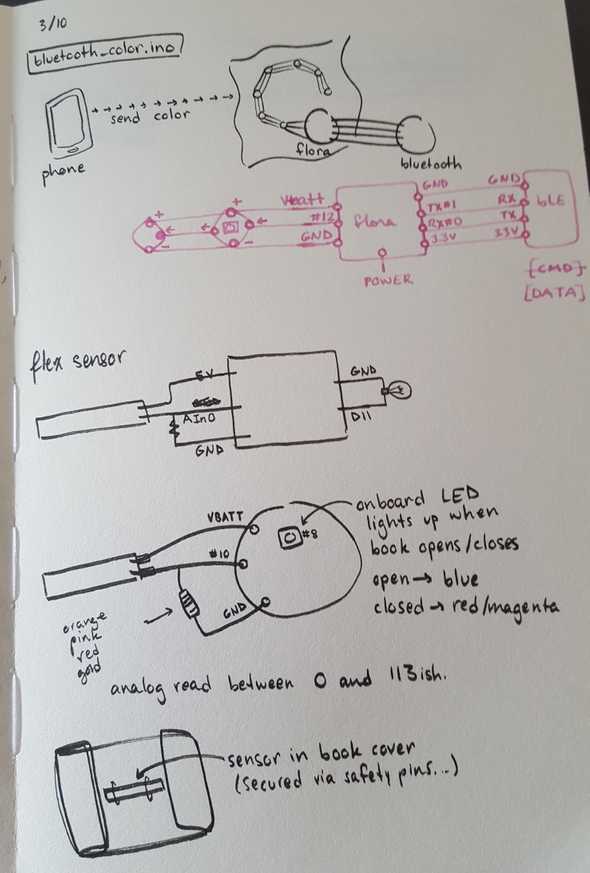 3/10
bluetooth_color.ino
send color
phone
flora
bluetooth
+ + Vbatt GND GND
#12 flora TX#1 RX bLE
RX#0 TX
- - GND 3.3V 3.3V
POWER
[CMD]
[DATA]
flex sensor
5V GND
AIn0 D11
GND
VBATT
#10
GND
#8
onboard LED
lights up when
book opens/closes
open → blue
closed → red/magenta
orange
pink
red
gold
analog read between 0 and 113ish.
sensor in book cover
(secured via safety pins...)